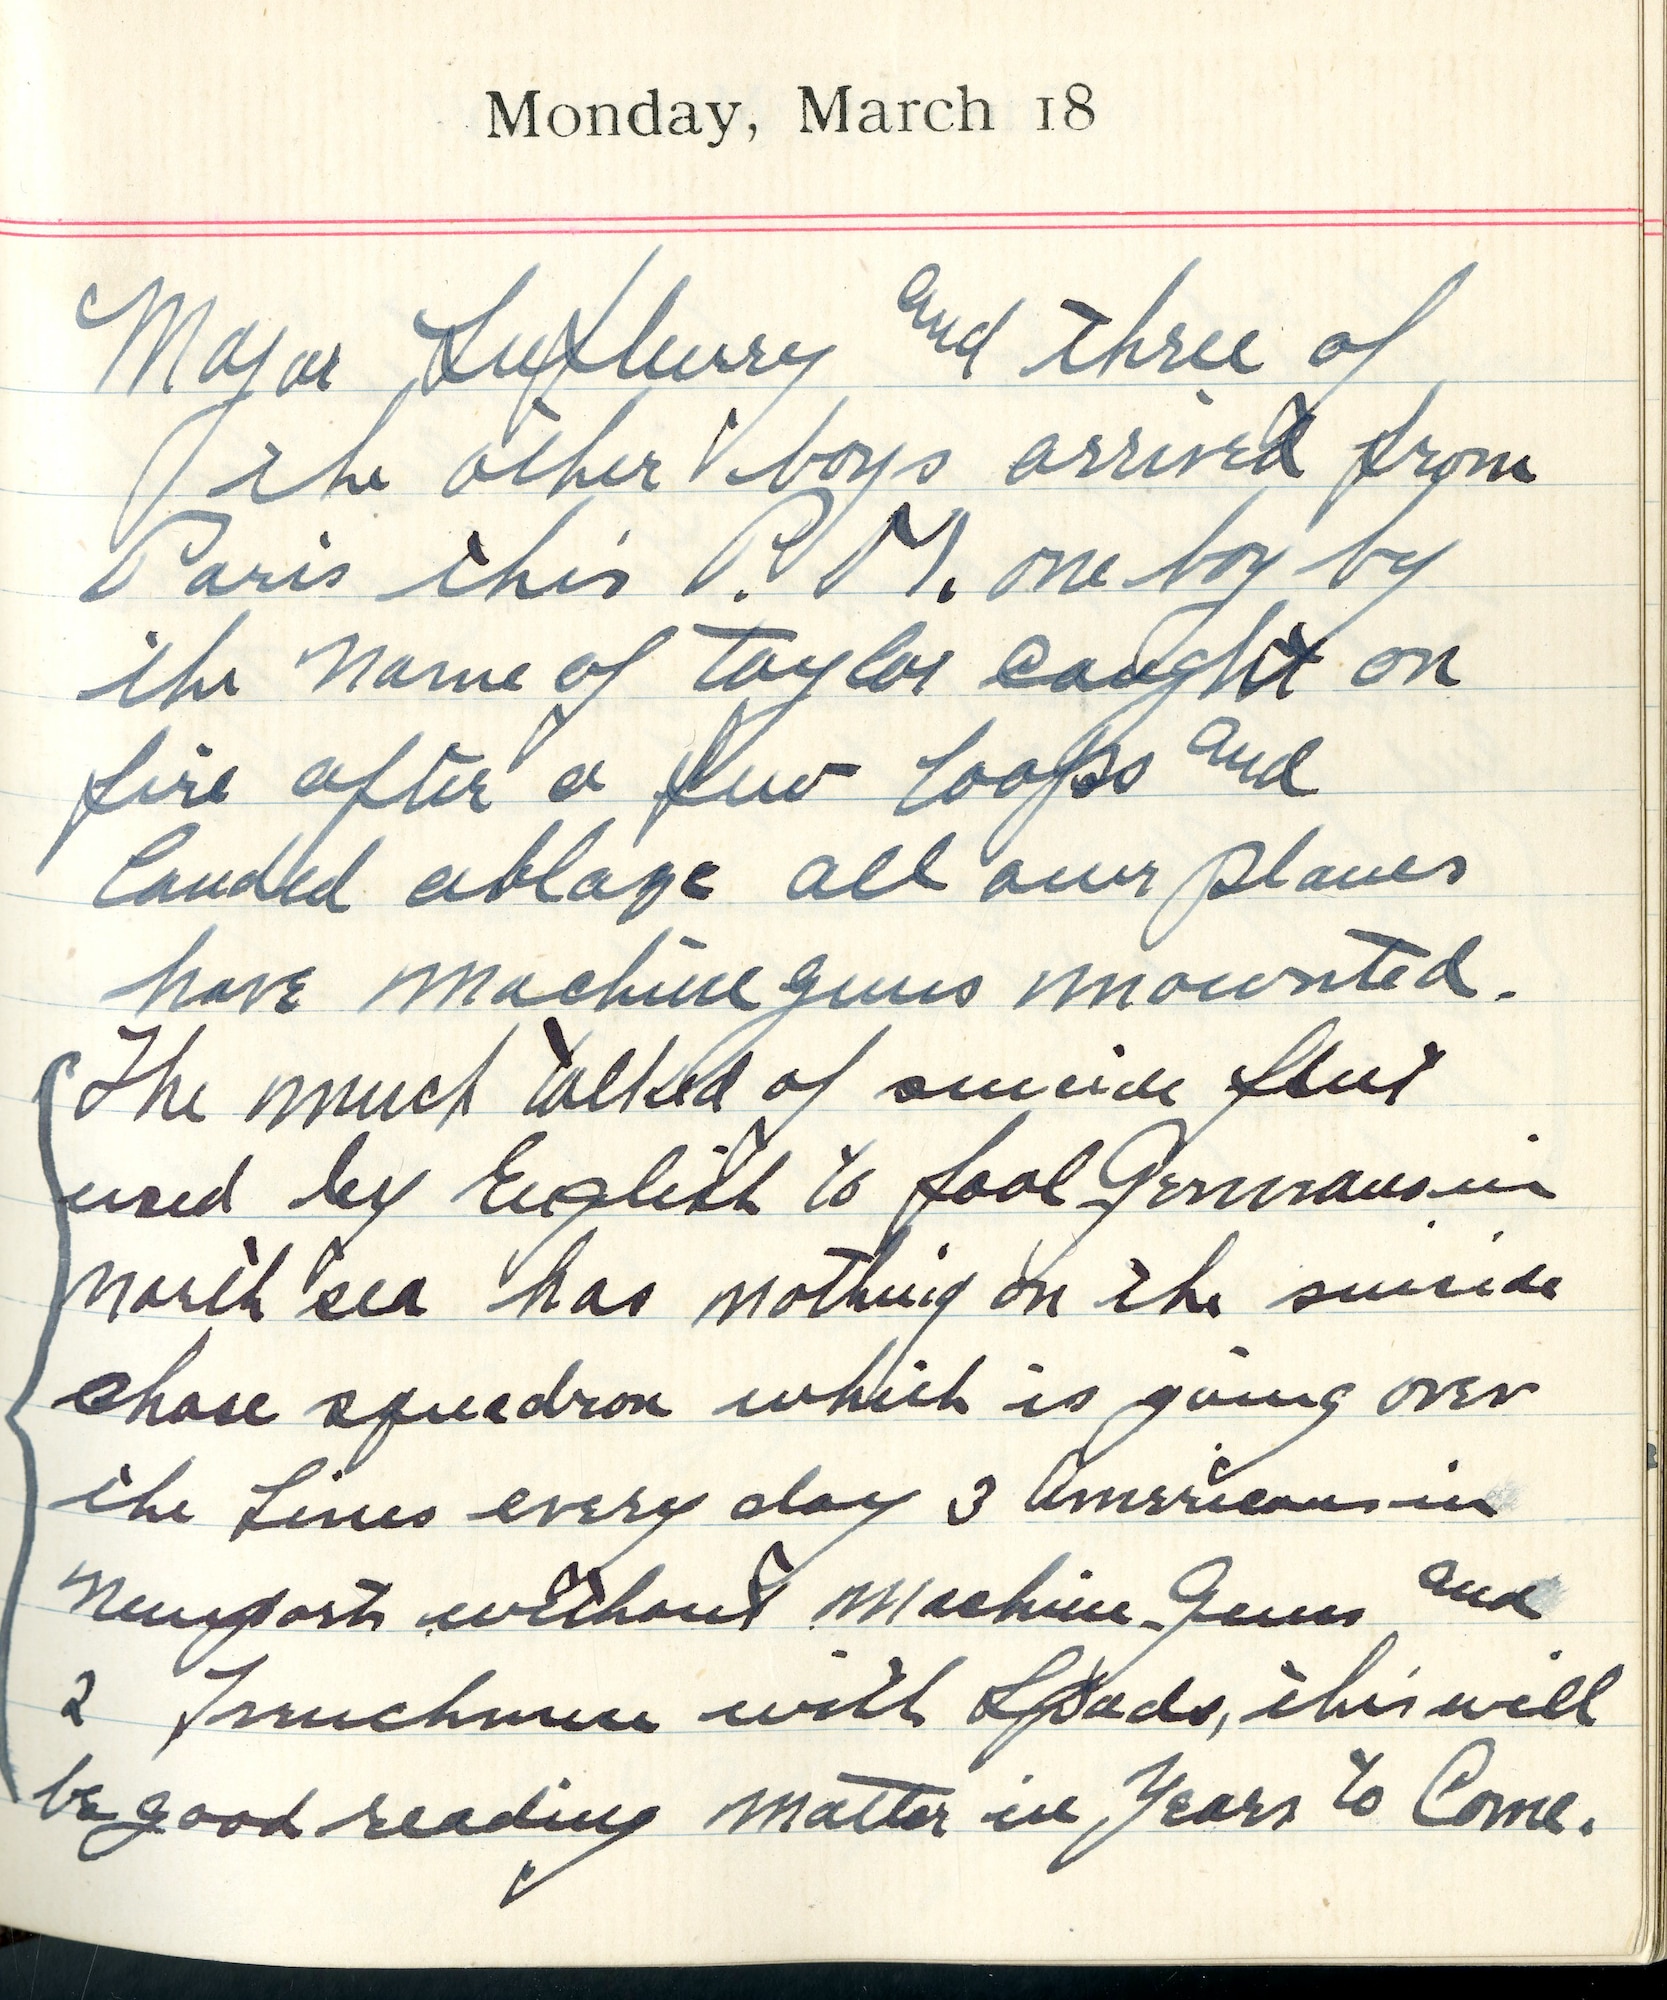 Monday, March 18
Major Lufbury and three of
the other boys arrived from
Paris this P. M. one boy by
the name of Taylor caught on
fire after a few loops and
landed ablaze all our planes
have machine guns mounted.
The much talked of suicide fleet
used by English to fool Germans in
north sea has nothing on the suicide
chase squadron which is going over
the lines every day 3 Americans in
Neuports without machine-guns and
2 Frenchmen with Spads, this will
be good reading matter in years to Come.